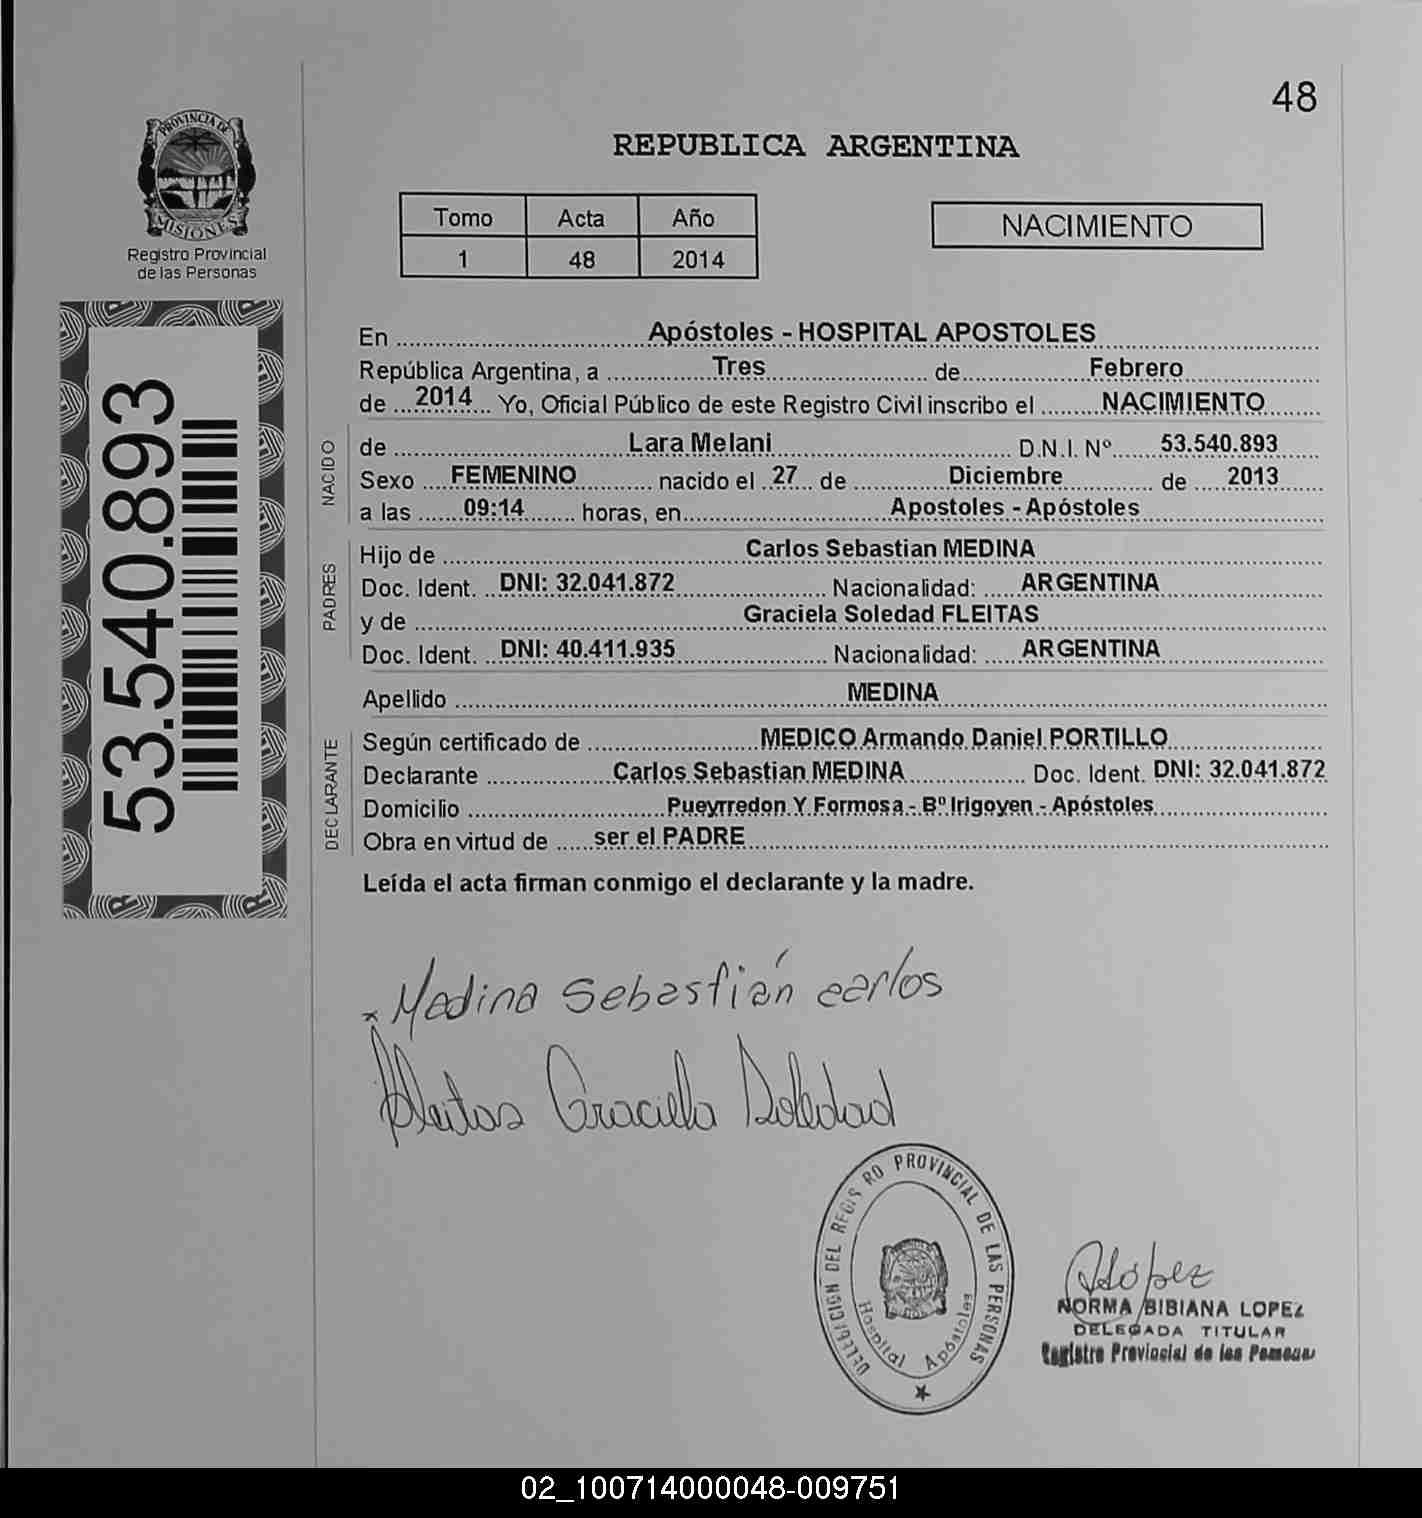 48
PROVINCIA DE
MISIONES
Registro Provincial
de las Personas
REPUBLICA ARGENTINA
Tomo Acta Año
1 48 2014
NACIMIENTO
53.540.893
En Apóstoles - HOSPITAL APOSTOLES
República Argentina, a Tres de Febrero
de 2014 Yo, Oficial Público de este Registro Civil inscribo el NACIMIENTO
NACIDO
de Lara Melani D.N.I. Nº 53.540.893
Sexo FEMENINO nacido el 27 de Diciembre de 2013
a las 09:14 horas, en Apostoles - Apóstoles
PADRES
Hijo de Carlos Sebastian MEDINA
Doc. Ident. DNI: 32.041.872 Nacionalidad: ARGENTINA
y de Graciela Soledad FLEITAS
Doc. Ident. DNI: 40.411.935 Nacionalidad: ARGENTINA
Apellido MEDINA
DECLARANTE
Según certificado de MEDICO Armando Daniel PORTILLO
Declarante Carlos Sebastian MEDINA Doc. Ident. DNI: 32.041.872
Domicilio Pueyrredon Y Formosa - Bº Irigoyen - Apóstoles
Obra en virtud de ser el PADRE
Leída el acta firman conmigo el declarante y la madre.
x Medina Sebastián carlos
Fleitas Graciela Soledad
DELEGACION DEL REGIS RO PROVINCIAL DE LAS PERSONAS
Hospital Apóstoles
López
NORMA BIBIANA LOPEZ
DELEGADA TITULAR
Registro Provincial de las Personas
02_100714000048-009751